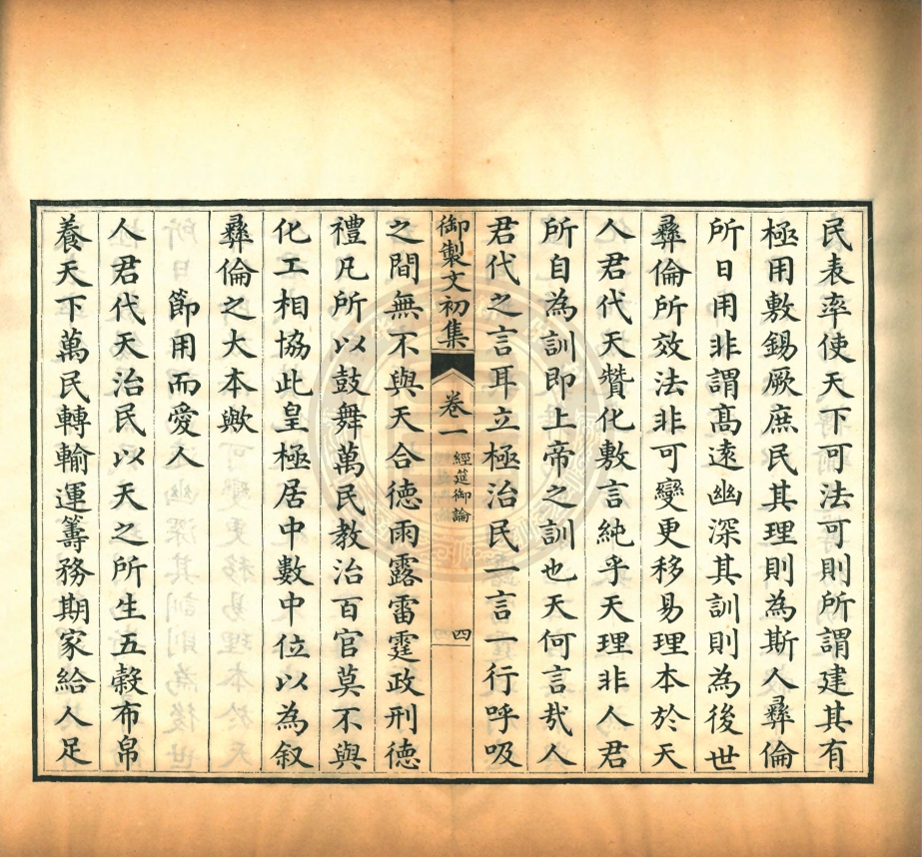 民表率使天下可法可則所謂建其有
極用敷錫厥庶民其理則為斯人彞倫
所日用非謂髙遠幽深其訓則為後世
彞倫所效法非可變更移易理本於天
人君代天贊化敷言純乎天理非人君
所自為訓即上帝之訓也天何言㢤人
君代之言耳立極治民一言一行呼吸
御製文初集 卷一 經筵御論 四
之間無不與天合德雨露雷霆政刑德
禮凡所以鼓舞萬民教治百官莫不與
化工相協此皇極居中數中位以為叙
彞倫之大本歟
節用而愛人
人君代天治民以天之所生五穀布帛
養天下萬民轉輸運籌務期家給人足